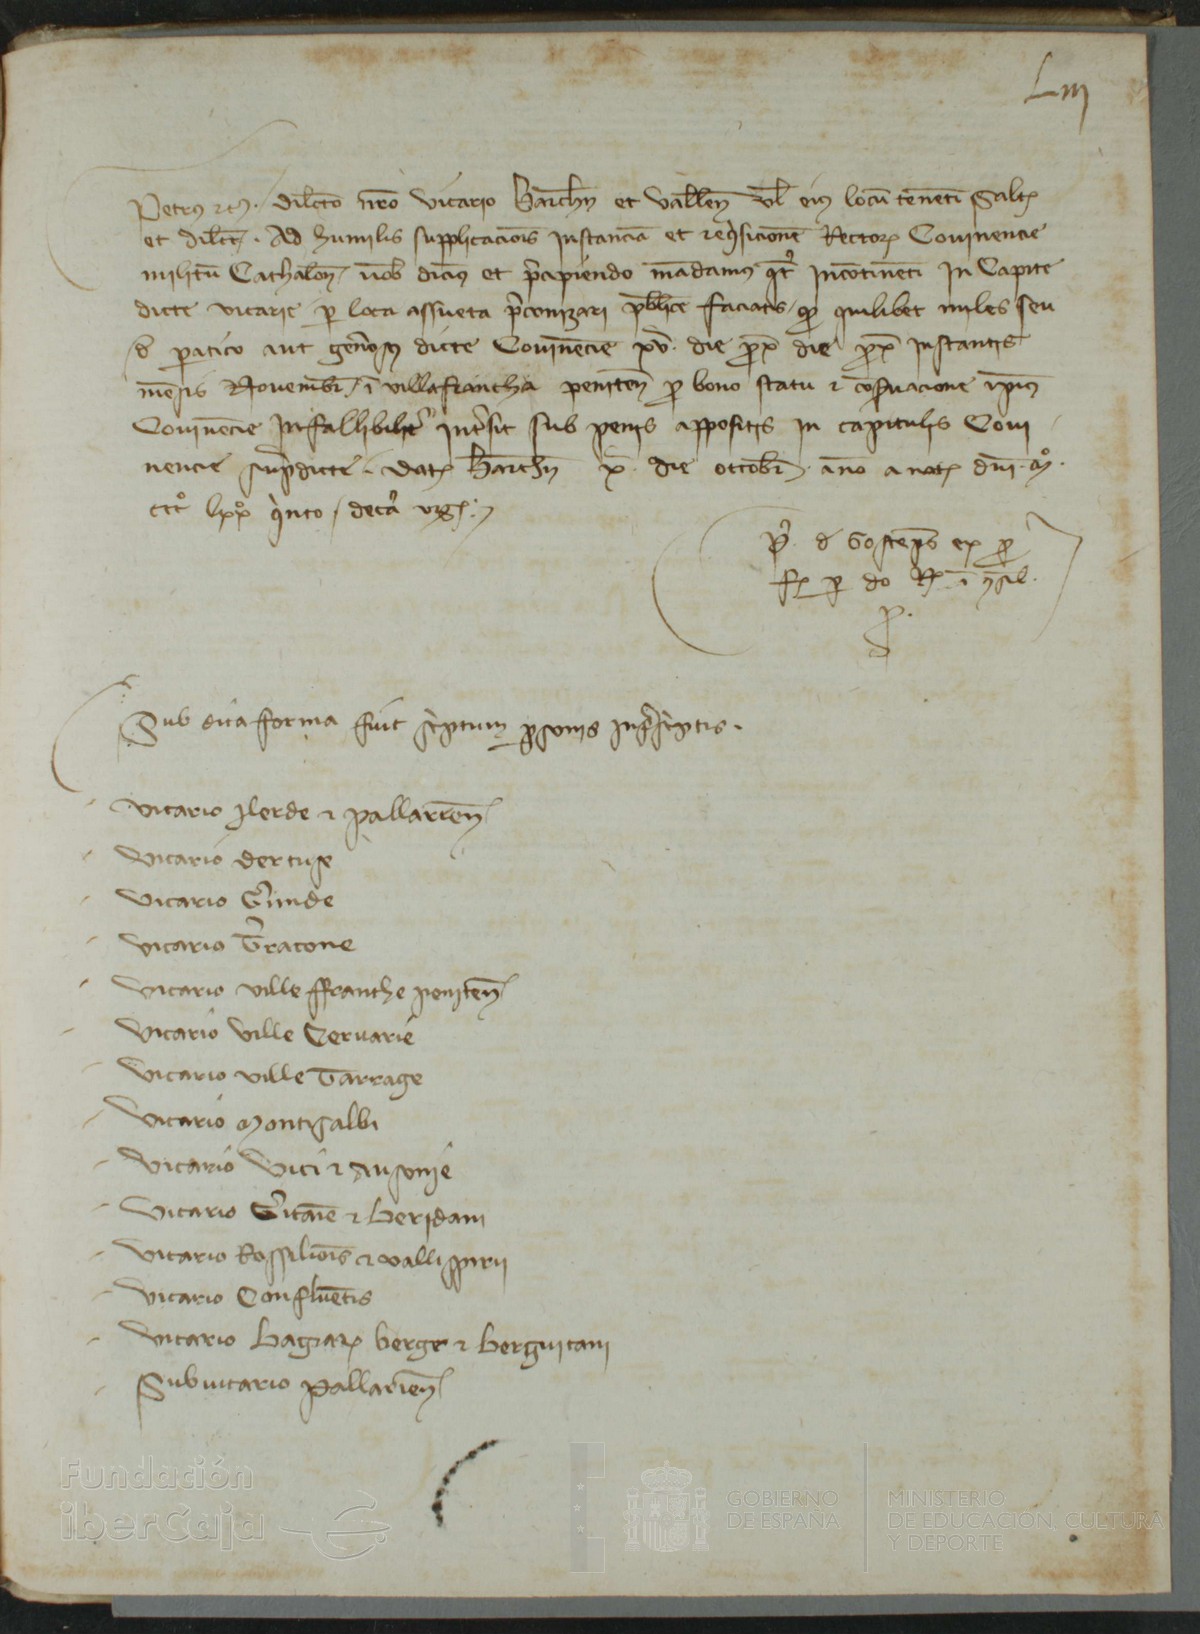 Liii
Petrus etc. dilecto nro vicario Barchn et Vallen vel eius locum tenenti Saltm
et dilcm. Ad humilis supplicacionis instanciam et requisicionem Rectorum Covinencie
militum Cathalon, vob dicimus et precipiendo mandamus qter incontinenti in Capite
dicte vicarie per loca assueta preconizari publice faciatis, quod quilibet miles seu
de paratico aut generosus dicte Covinencie xv die prox die prox instantis
mensis Novembr, in villafrancha peniten pro bono statu et conservacione ipius
Covinencie infallibiliter intersit sub penis appositis in capitulis Covi
nencie supradicte. Dat Barchn x die octobr anno a nat dni Mo
ccco lxxo quinto
Sub dicta forma fuit scriptum personis infrascriptis.
Vicario Ilerde et pallarien
Vicario dertuse
Vicario Gerunde
Vicario Terracone
Vicario ville ffranche peniten
Vicario ville Cervarie
Vicario ville Tarrage
Vicario montisalbi
Vicario Vici et Ausonie
Vicario Ceritanie et beridani
Vicario Rossilionis et vallispirii
Vicario Confluentis
Vicario bagiarum berge et berguitani
Subvicario pallarien
Fundación
iberCaja
GOBIERNO
DE ESPAÑA
MINISTERIO
DE EDUCACIÓN, CULTURA
Y DEPORTE